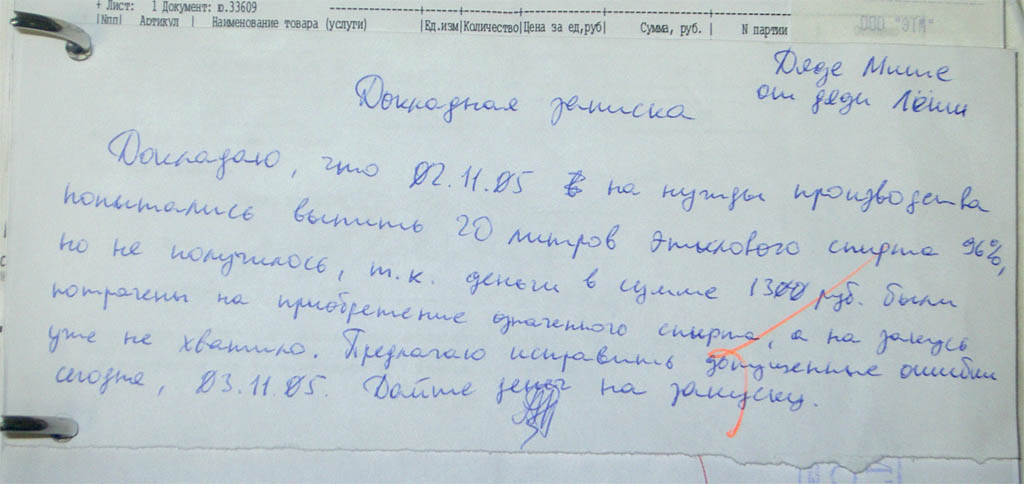 + Лист: 1 Документ: ю.33609
|№пп| Артикул | Наименование товара (услуги) |Ед.изм|Количество|Цена за ед,руб| Сумма, руб. | N партии
ООО "ЭТМ"
Дяде Мише
от дяди Лёши
Докладная записка
Докладаю, что 02.11.05 на нужды производства
попытались выпить 20 литров этилового спирта 96%,
но не получилось, т.к. деньги в сумме 1300 руб. были
потрачены на приобретение означенного спирта, а на закусь
уже не хватило. Предлагаю исправить допущенные ошибки
сегодня, 03.11.05. Дайте денег на закуску.